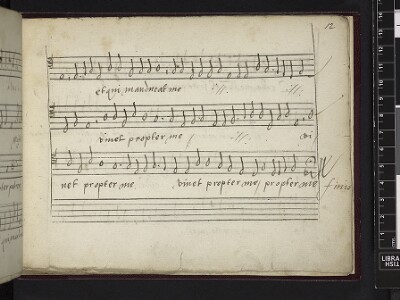 12
et qui manducat me :||: :||:
vivet propter me :||: vi
vet propter me, vivet propter me, propter me
finis